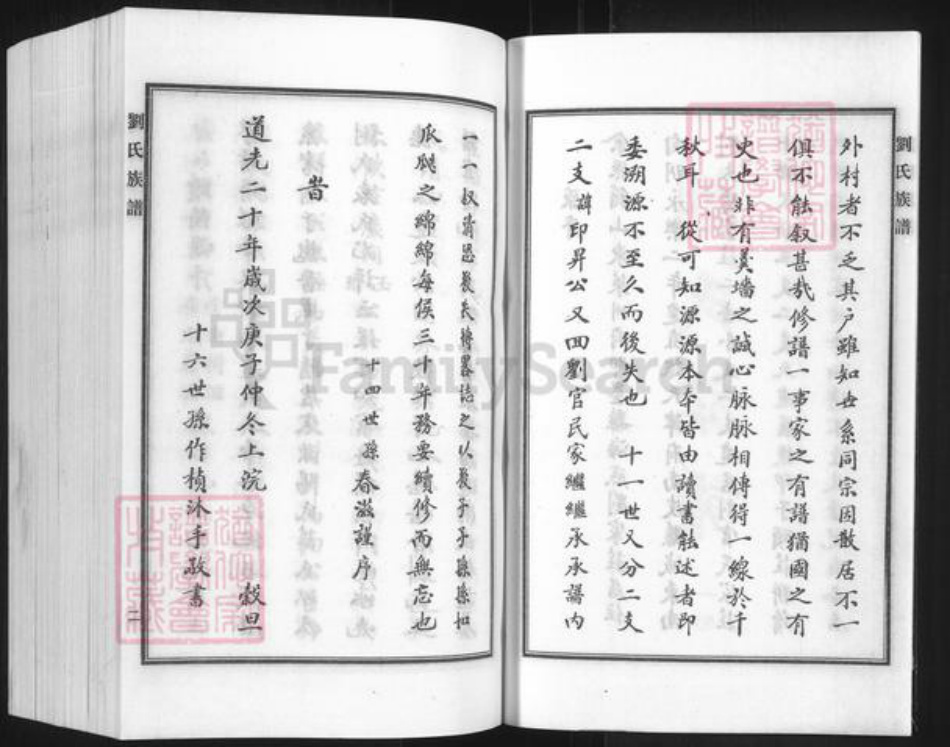 劉氏族譜
外村者不乏其户雖知世系同宗因散居不一
俱不能叙甚哉修譜一事家之有譜猶國之有
史也非有羹墻之誠心脉脉相傳得一線於千
秋耳從可知源源本本皆由讀書能述者即
委溯源不至久而後失也 十一世又分二支
二支諱印昇公又四劉官民家繼繼承承譜内
一一叙
之以
子子孫孫
瓜瓞之綿綿每俟三十年務要續修而無忘也
十四世孫春滋謹序
峕
道光二十年歲次庚子仲冬上浣 穀旦
十六世孫作楨沐手敬書
劉氏族譜
二
FamilySearch